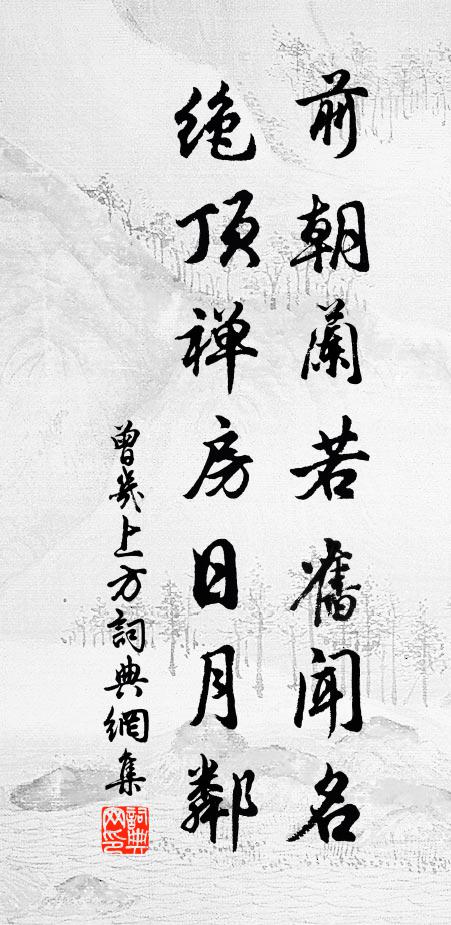 前朝蘭若舊聞名
絶頂禅房日月鄰
曾幾上方詞典網集
詞典网印